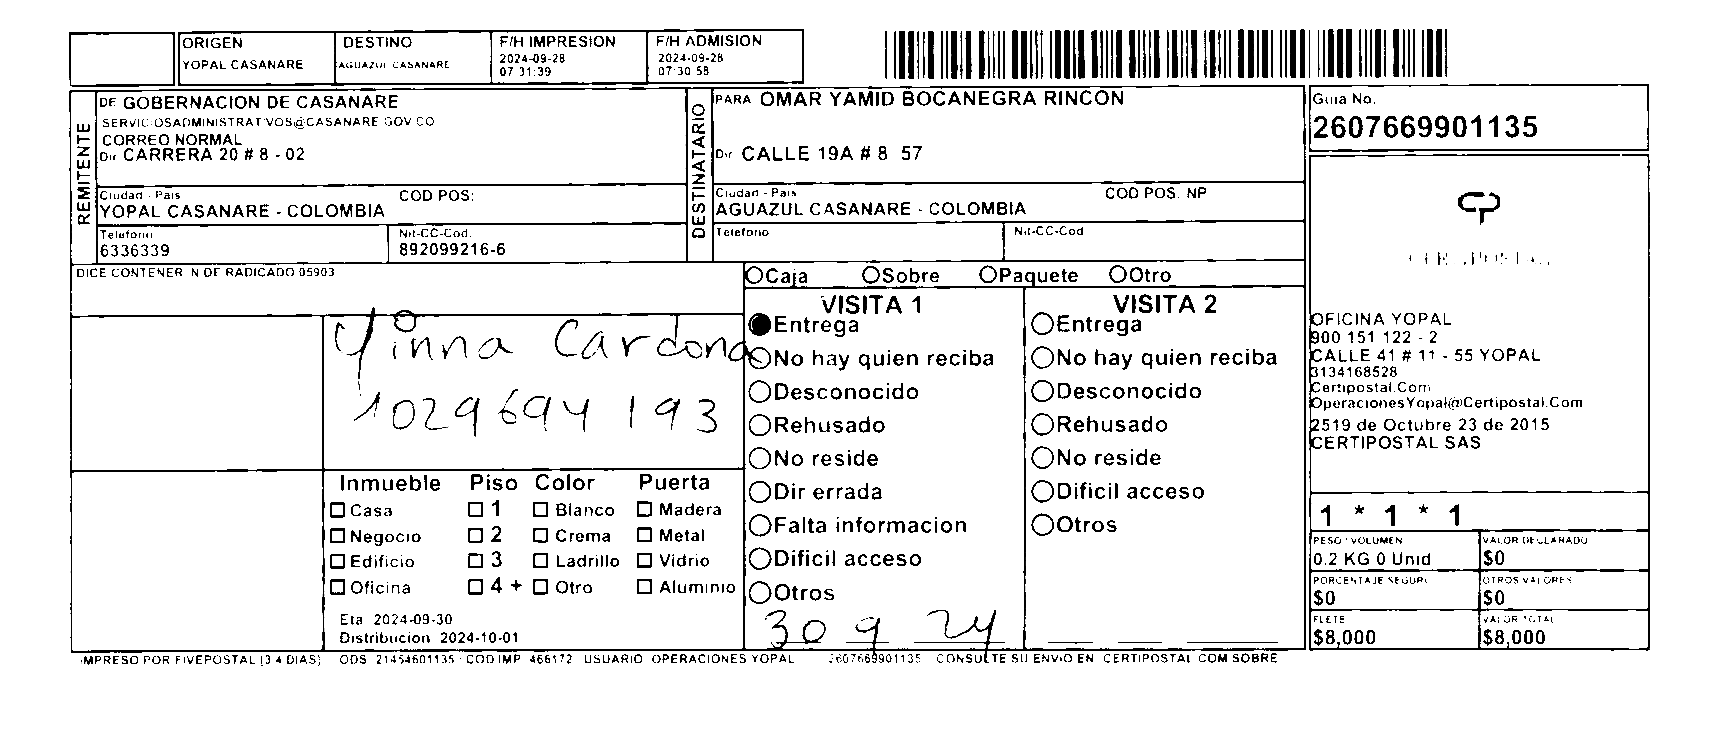 ORIGEN
YOPAL CASANARE
DESTINO
AGUAZUL CASANARE
F/H IMPRESION
2024-09-28
07 31:39
F/H ADMISION
2024-09-28
07:30 58
REMITENTE
DE GOBERNACION DE CASANARE
SERVICIOSADMINISTRATIVOS@CASANARE GOV CO
CORREO NORMAL
Dir CARRERA 20 # 8 - 02
Ciudad - Pais
COD POS:
YOPAL CASANARE - COLOMBIA
Telefono
6336339
Nit-CC-Cod.
892099216-6
DESTINATARIO
PARA OMAR YAMID BOCANEGRA RINCON
Dir CALLE 19A # 8 57
Ciudad - Pais
COD POS. NP
AGUAZUL CASANARE - COLOMBIA
Telefono
Nit-CC-Cod
Guia No.
2607669901135
DICE CONTENER N DE RADICADO 05903
Caja Sobre Paquete Otro
Yinna Cardona
1029694193
VISITA 1
Entrega
No hay quien reciba
Desconocido
Rehusado
No reside
Dir errada
Falta informacion
Dificil acceso
Otros
30 9 24
VISITA 2
Entrega
No hay quien reciba
Desconocido
Rehusado
No reside
Dificil acceso
Otros
Inmueble Piso Color Puerta
Casa 1 Blanco Madera
Negocio 2 Crema Metal
Edificio 3 Ladrillo Vidrio
Oficina 4 + Otro Aluminio
Eta 2024-09-30
Distribucion 2024-10-01
OFICINA YOPAL
900 151 122 - 2
CALLE 41 # 11 - 55 YOPAL
3134168528
Certipostal.Com
OperacionesYopal@Certipostal.Com
2519 de Octubre 23 de 2015
CERTIPOSTAL SAS
1 * 1 * 1
PESO / VOLUMEN
0.2 KG 0 Unid
VALOR DECLARADO
$0
PORCENTAJE SEGURO
$0
OTROS VALORES
$0
FLETE
$8,000
VALOR TOTAL
$8,000
IMPRESO POR FIVEPOSTAL (3 4 DIAS) ODS 21454601135 COD IMP 466172 USUARIO OPERACIONES YOPAL 2607669901135 CONSULTE SU ENVIO EN CERTIPOSTAL COM SOBRE